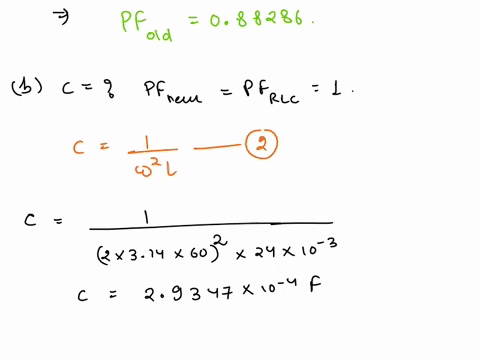 ⇒ PF_old = 0.88286.
(b) C = ? PF_new = PF_RLC = 1.
C = 1 / ω²L —— ②
C = 1 / (2 × 3.14 × 60)² × 24 × 10⁻³
C = 2.9347 × 10⁻⁴ F